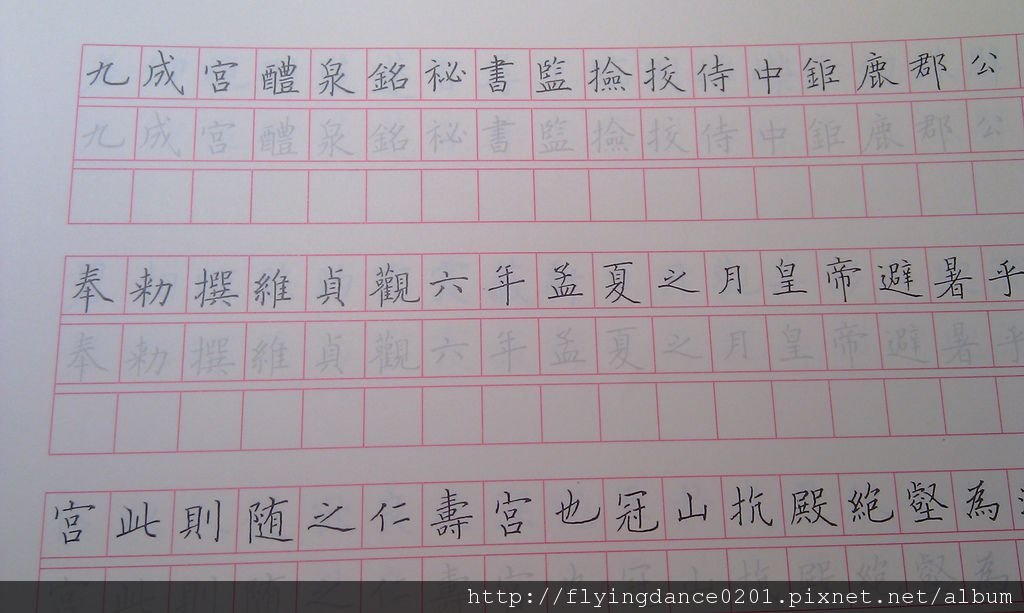 九成宮醴泉銘秘書監撿挍侍中鉅鹿郡公
九成宮醴泉銘秘書監撿挍侍中鉅鹿郡公
奉勑撰維貞觀六年孟夏之月皇帝避暑乎
奉勑撰維貞觀六年孟夏之月皇帝避暑乎
宮此則隨之仁壽宮也冠山抗殿絕壑為
宮此則隨之仁壽宮也冠山抗殿絕壑為
http://flyingdance0201.pixnet.net/album